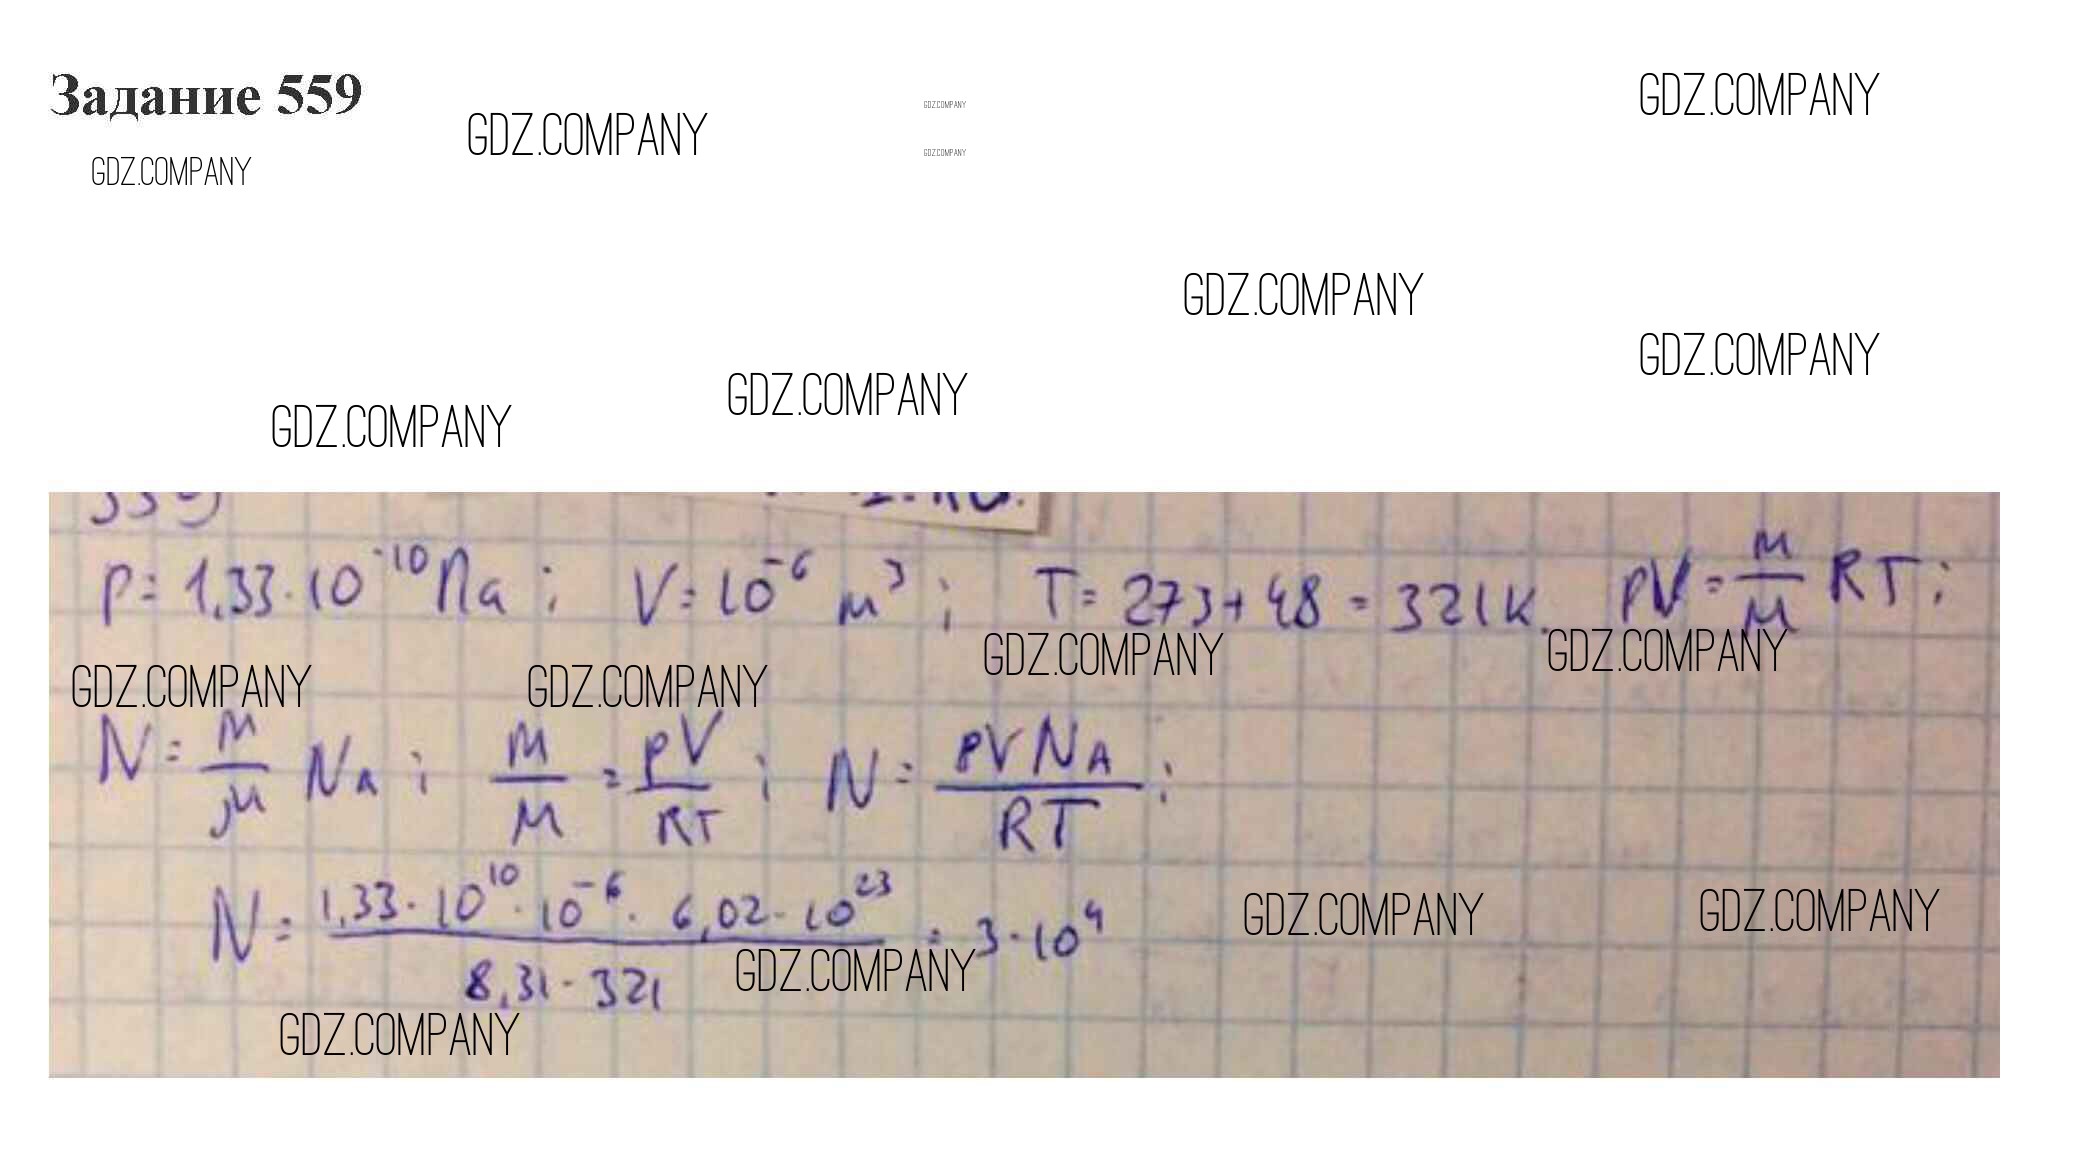 Задание 559
GDZ.COMPANY
GDZ.COMPANY
GDZ.COMPANY
GDZ.COMPANY
GDZ.COMPANY
GDZ.COMPANY
GDZ.COMPANY
GDZ.COMPANY
GDZ.COMPANY
559
p = 1,33 · 10⁻¹⁰ Па ; V = 10⁻⁶ м³ ; T = 273 + 48 = 321 К. pV = м/М RT ;
GDZ.COMPANY
GDZ.COMPANY
GDZ.COMPANY
GDZ.COMPANY
N = м/μ Nа ; м/М = pV/RT ; N = pVNA/RT ;
N = 1,33 · 10¹⁰ · 10⁻⁶ · 6,02 · 10²³ / 8,31 · 321 = 3 · 10⁴
GDZ.COMPANY
GDZ.COMPANY
GDZ.COMPANY
GDZ.COMPANY